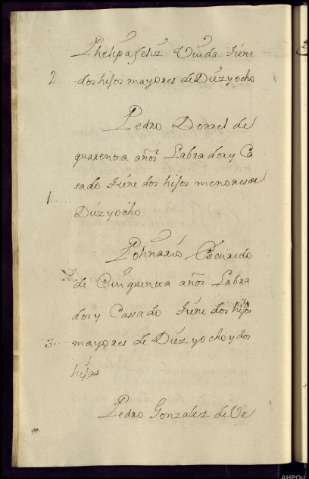 Phelipa feliz Viuda tiene
2 dos hijos mayores de Diez yocho
Pedro Donzel de
quarenta años Labrador y Ca
1 sado tiene dos hijos menores de
Diez yocho
de Cinquenta años Labra
dor y Casado tiene dos hijos
3 mayores de Diez yocho y dos
hijas
Pedro Gonzalez de Ve